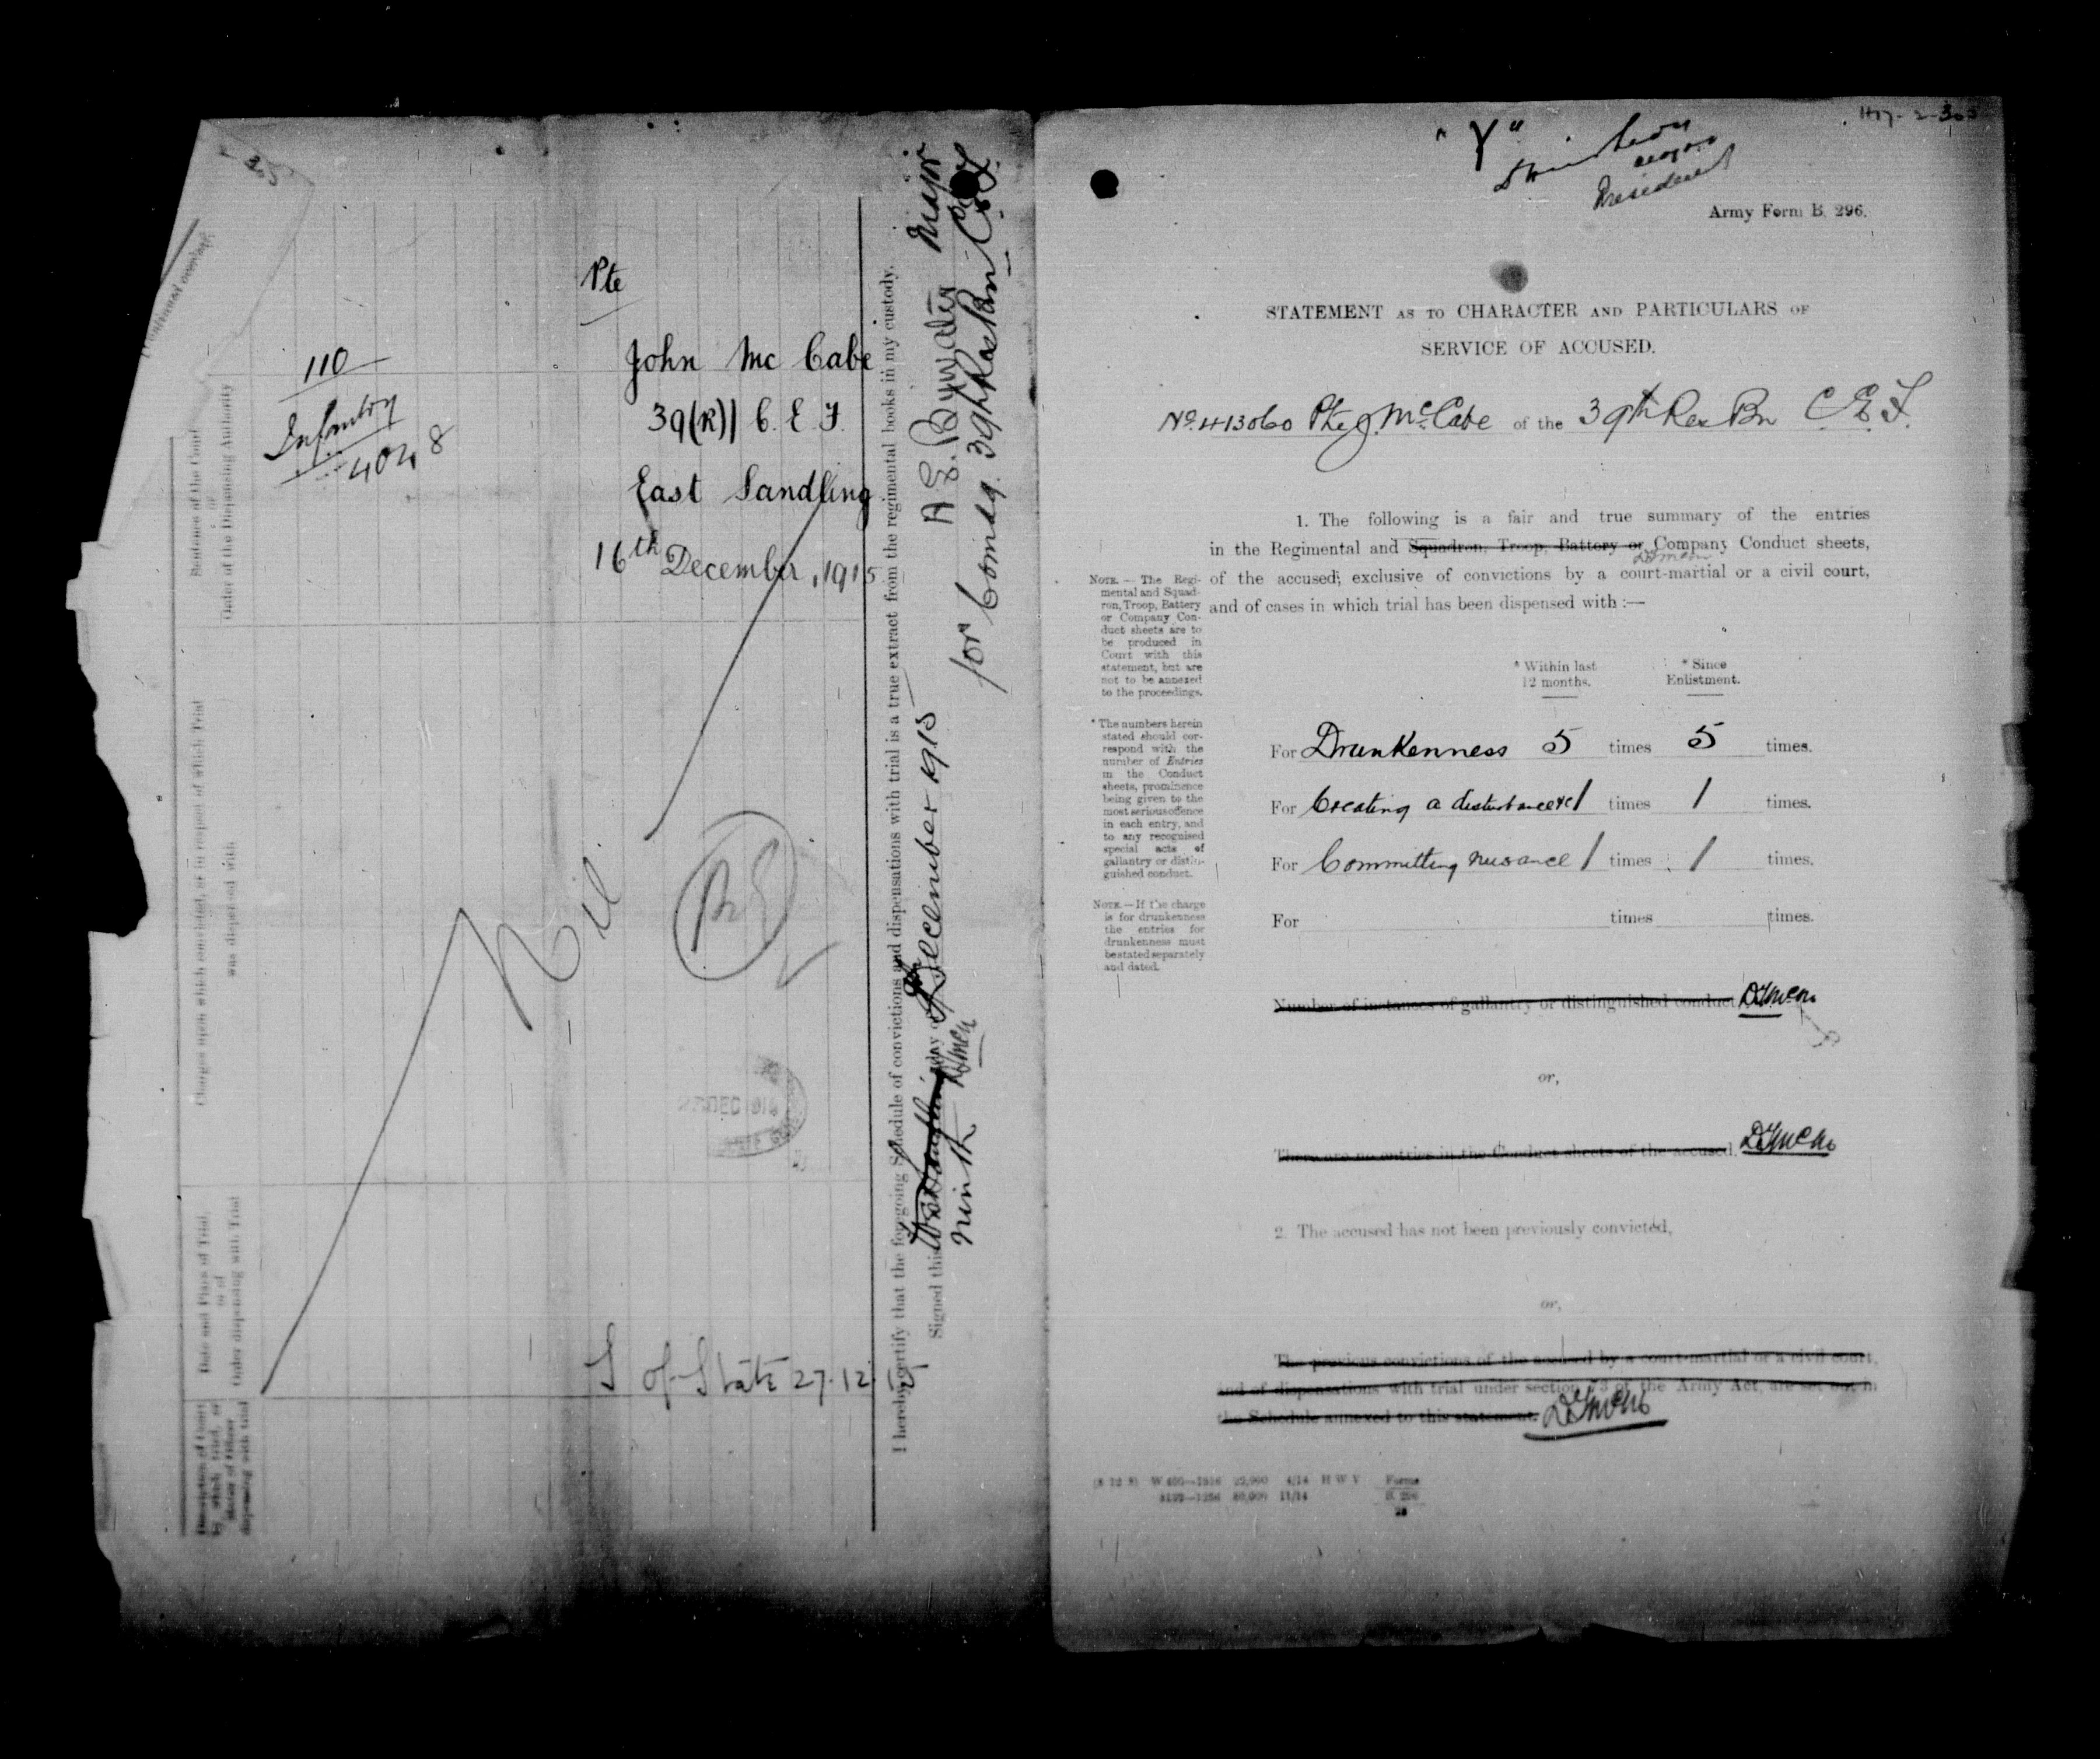 Pte
110
John Mc Cabe
Infantry
39(R)| C. E. F.
4048
East Sandling
16th December, 1915
Nil
27 DEC 191
S of State 27.12.15
Sentence of the Court
or
Order of the Dispensing Authority
Charges upon which convicted, or in respect of which Trial
was dispensed with
Date and Place of Trial,
or of
Order dispensing with Trial
Description of Court
by which tried, or
Name of Officer
dispensing with trial
I hereby certify that the foregoing Schedule of convictions and dispensations with trial is a true extract from the regimental books in my custody.
Signed this day of December 1915
ninth
A E. Bywater Major
for Comdg. 39th Res Bn C.E.F.
"Y"
President
Army Form B. 296.
STATEMENT AS TO CHARACTER AND PARTICULARS OF
SERVICE OF ACCUSED.
No. 413060 Pte J. McCabe of the 39th Res Bn C.E.F.
1. The following is a fair and true summary of the entries
in the Regimental and Squadron, Troop, Battery or Company Conduct sheets,
of the accused, exclusive of convictions by a court-martial or a civil court,
and of cases in which trial has been dispensed with :—
NOTE.—The Regi-
mental and Squad-
ron, Troop, Battery
or Company Con-
duct sheets are to
be produced in
Court with this
statement, but are
not to be annexed
to the proceedings.
* The numbers herein
stated should cor-
respond with the
number of Entries
in the Conduct
sheets, prominence
being given to the
most serious offence
in each entry, and
to any recognised
special acts of
gallantry or distin-
guished conduct.
NOTE.—If the charge
is for drunkenness
the entries for
drunkenness must
be stated separately
and dated.
* Within last
12 months.
* Since
Enlistment.
For Drunkenness 5 times 5 times.
For Creating a disturbance &c 1 times 1 times.
For Committing nusance 1 times 1 times.
For times times.
Number of instances of gallantry or distinguished conduct
or,
There are no entries in the Conduct sheets of the accused.
2. The accused has not been previously convicted,
or,
The previous convictions of the accused by a court-martial or a civil court,
and of dispensations with trial under section 73 of the Army Act, are set out in
the Schedule annexed to this statement.
Forms
B. 296